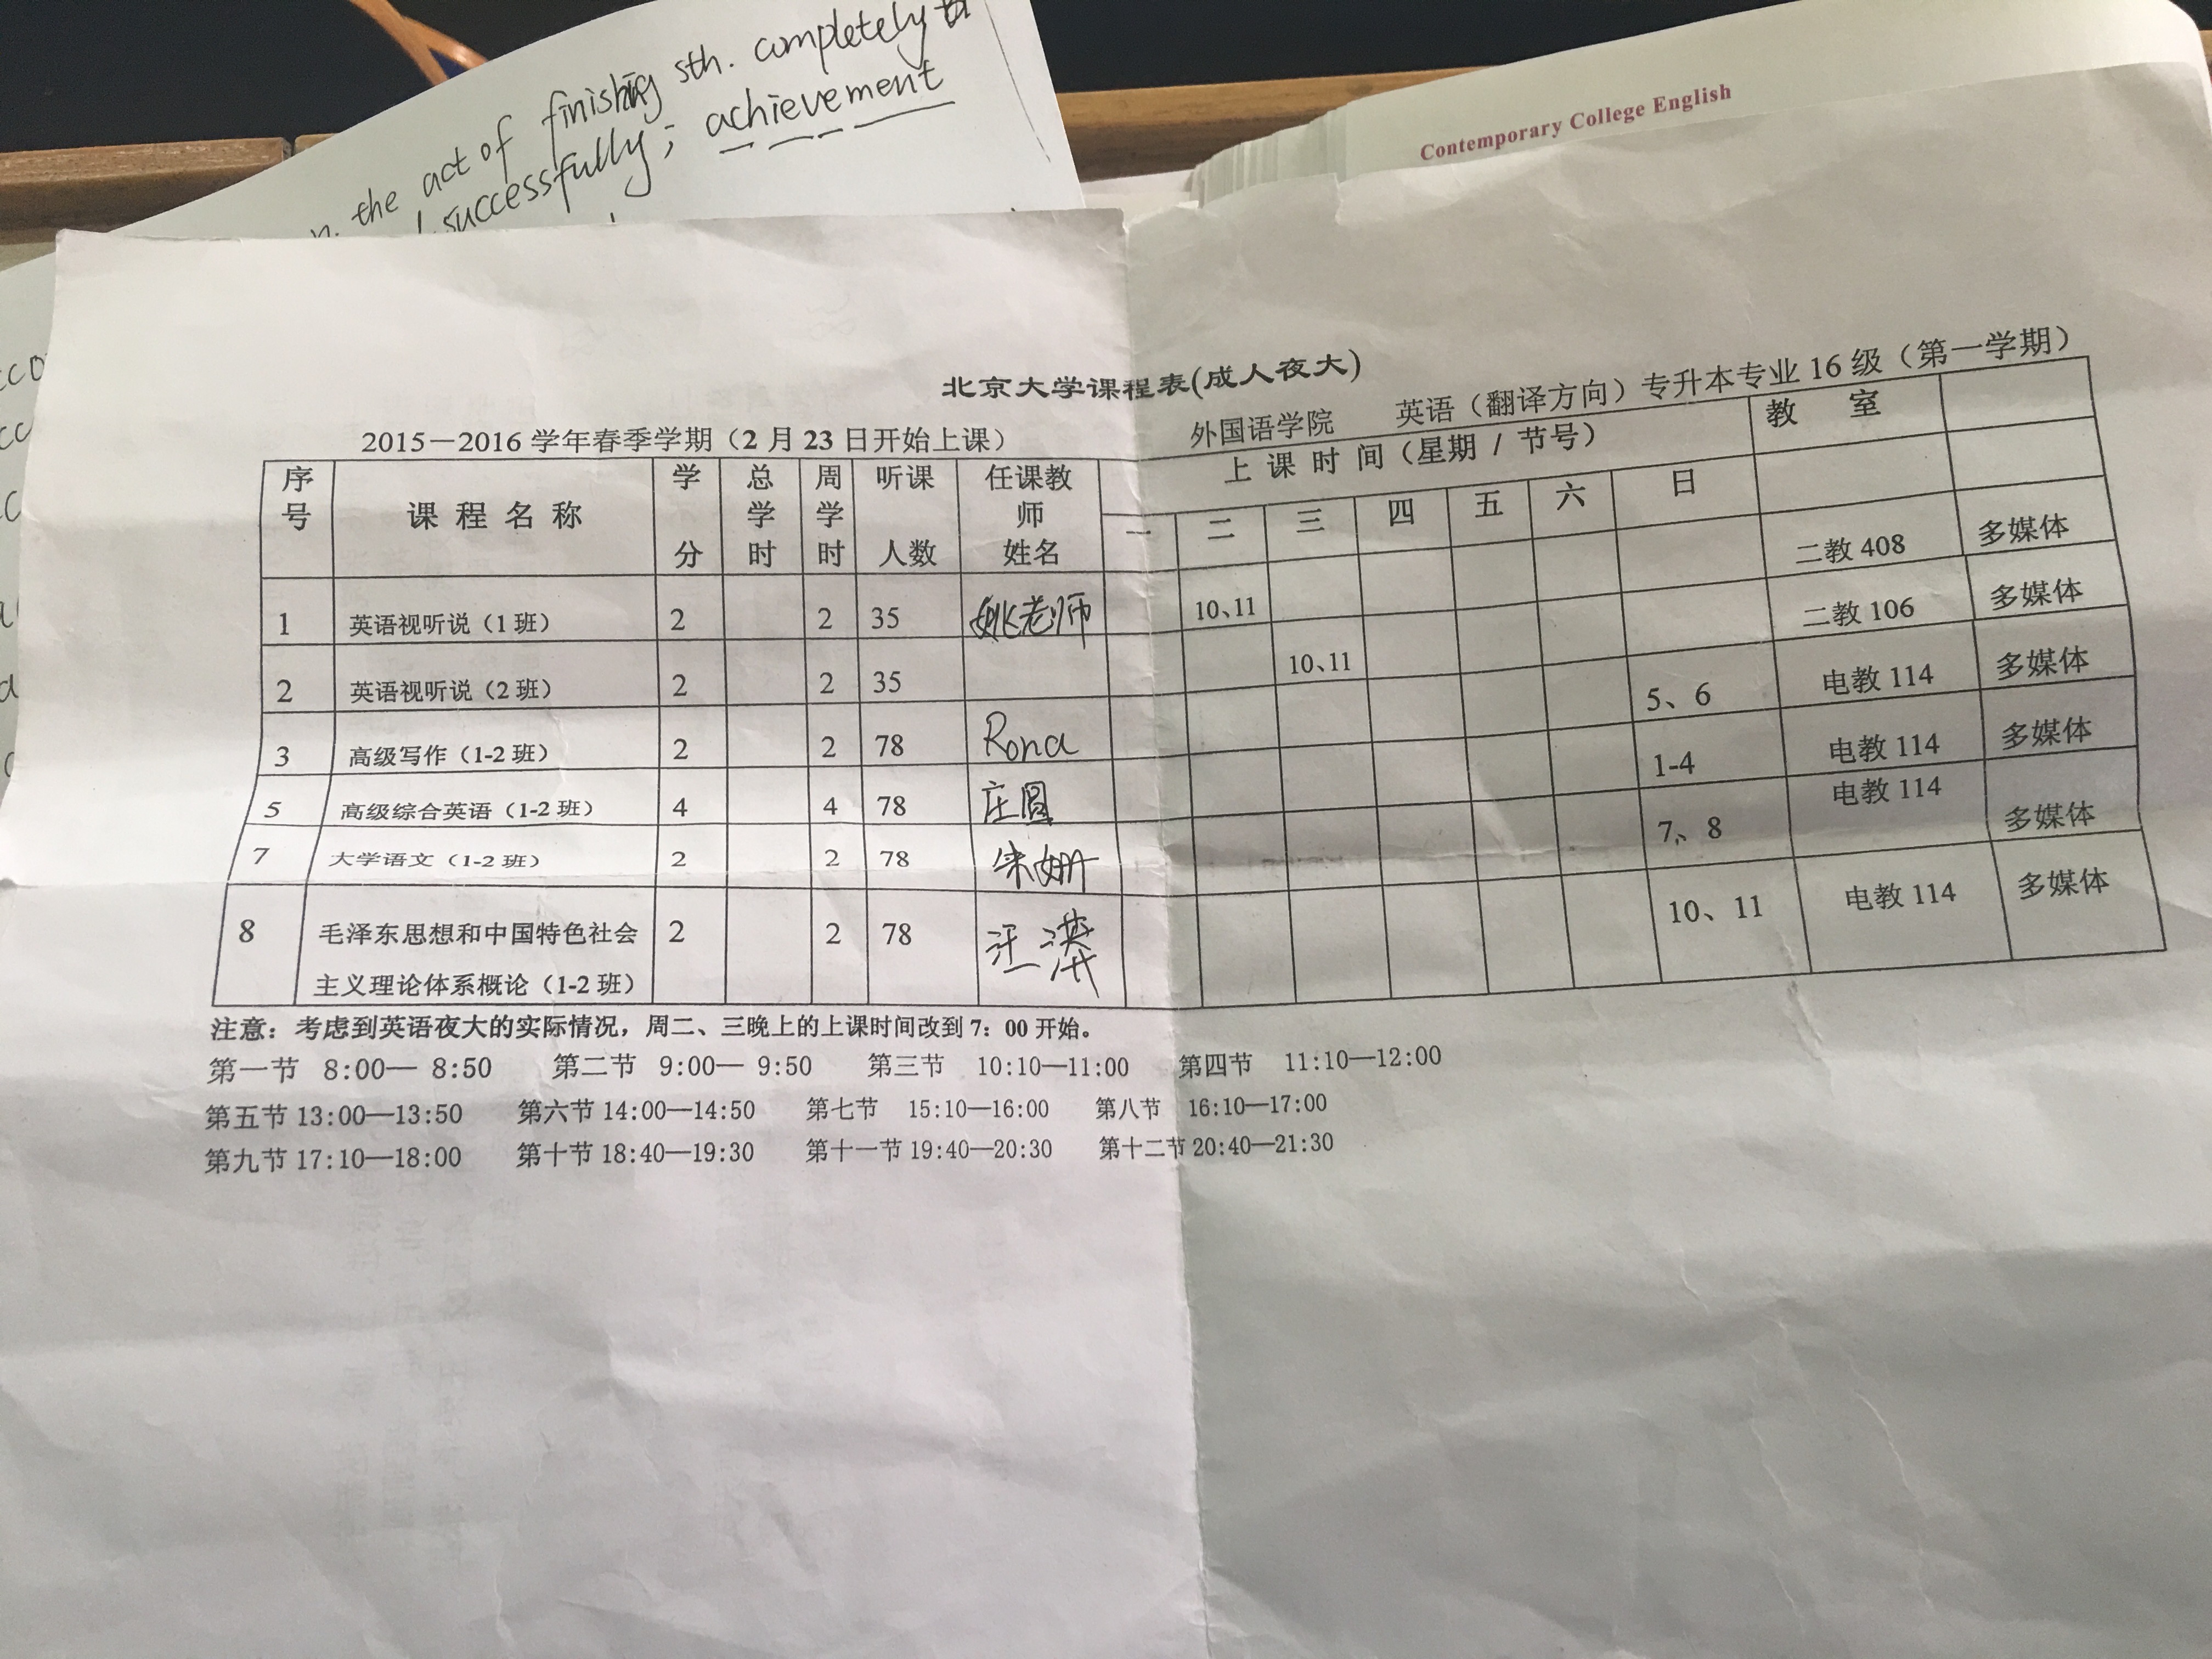 n. the act of finishing sth. completely
successfully; achievement
Contemporary College English
北京大学课程表(成人夜大)
2015－2016 学年春季学期（2 月 23 日开始上课） 外国语学院 英语（翻译方向）专升本专业 16 级（第一学期）
序号 课 程 名 称 学分 总学时 周学时 听课人数 任课教师姓名 上 课 时 间（星期 / 节号） 教 室
一 二 三 四 五 六 日
1 英语视听说（1 班） 2 2 35 姚老师 10、11 二教 408 多媒体
2 英语视听说（2 班） 2 2 35 10、11 二教 106 多媒体
3 高级写作（1-2 班） 2 2 78 Rona 5、6 电教 114 多媒体
5 高级综合英语（1-2 班） 4 4 78 庄圆 1-4 电教 114 多媒体
7 大学语文（1-2 班） 2 2 78 朱姗 7、8 电教 114 多媒体
8 毛泽东思想和中国特色社会 2 2 78 汪 10、11 电教 114 多媒体
主义理论体系概论（1-2 班）
注意：考虑到英语夜大的实际情况，周二、三晚上的上课时间改到 7：00 开始。
第一节 8:00— 8:50 第二节 9:00— 9:50 第三节 10:10—11:00 第四节 11:10—12:00
第五节 13:00—13:50 第六节 14:00—14:50 第七节 15:10—16:00 第八节 16:10—17:00
第九节 17:10—18:00 第十节 18:40—19:30 第十一节 19:40—20:30 第十二节 20:40—21:30